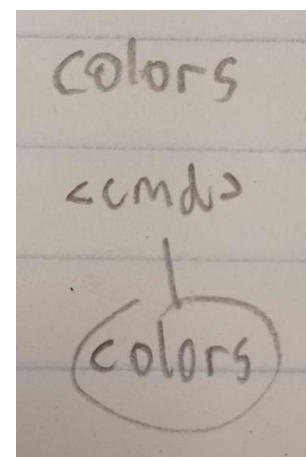 colors
<cmd>
colors